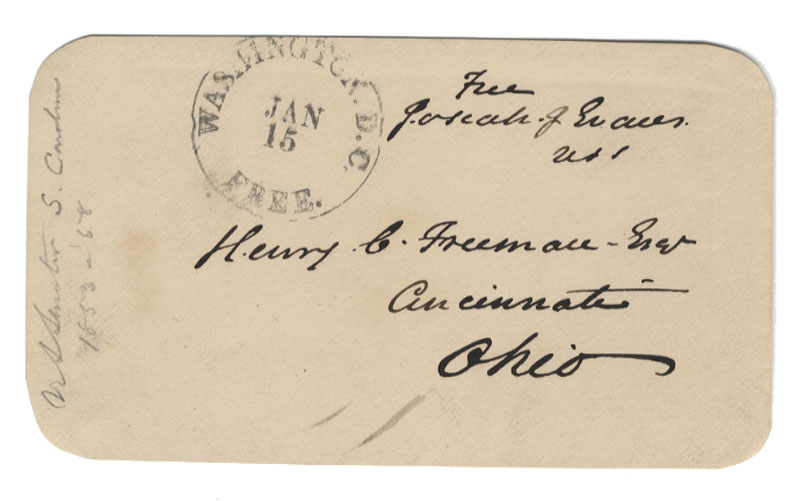 WASHINGTON. D.C.
JAN
15
FREE.
Free
Josiah J Evans.
USS
Henry C. Freeman - Esqr
Cincinnati
Ohio
US Senator S. Carolina
1853-'58